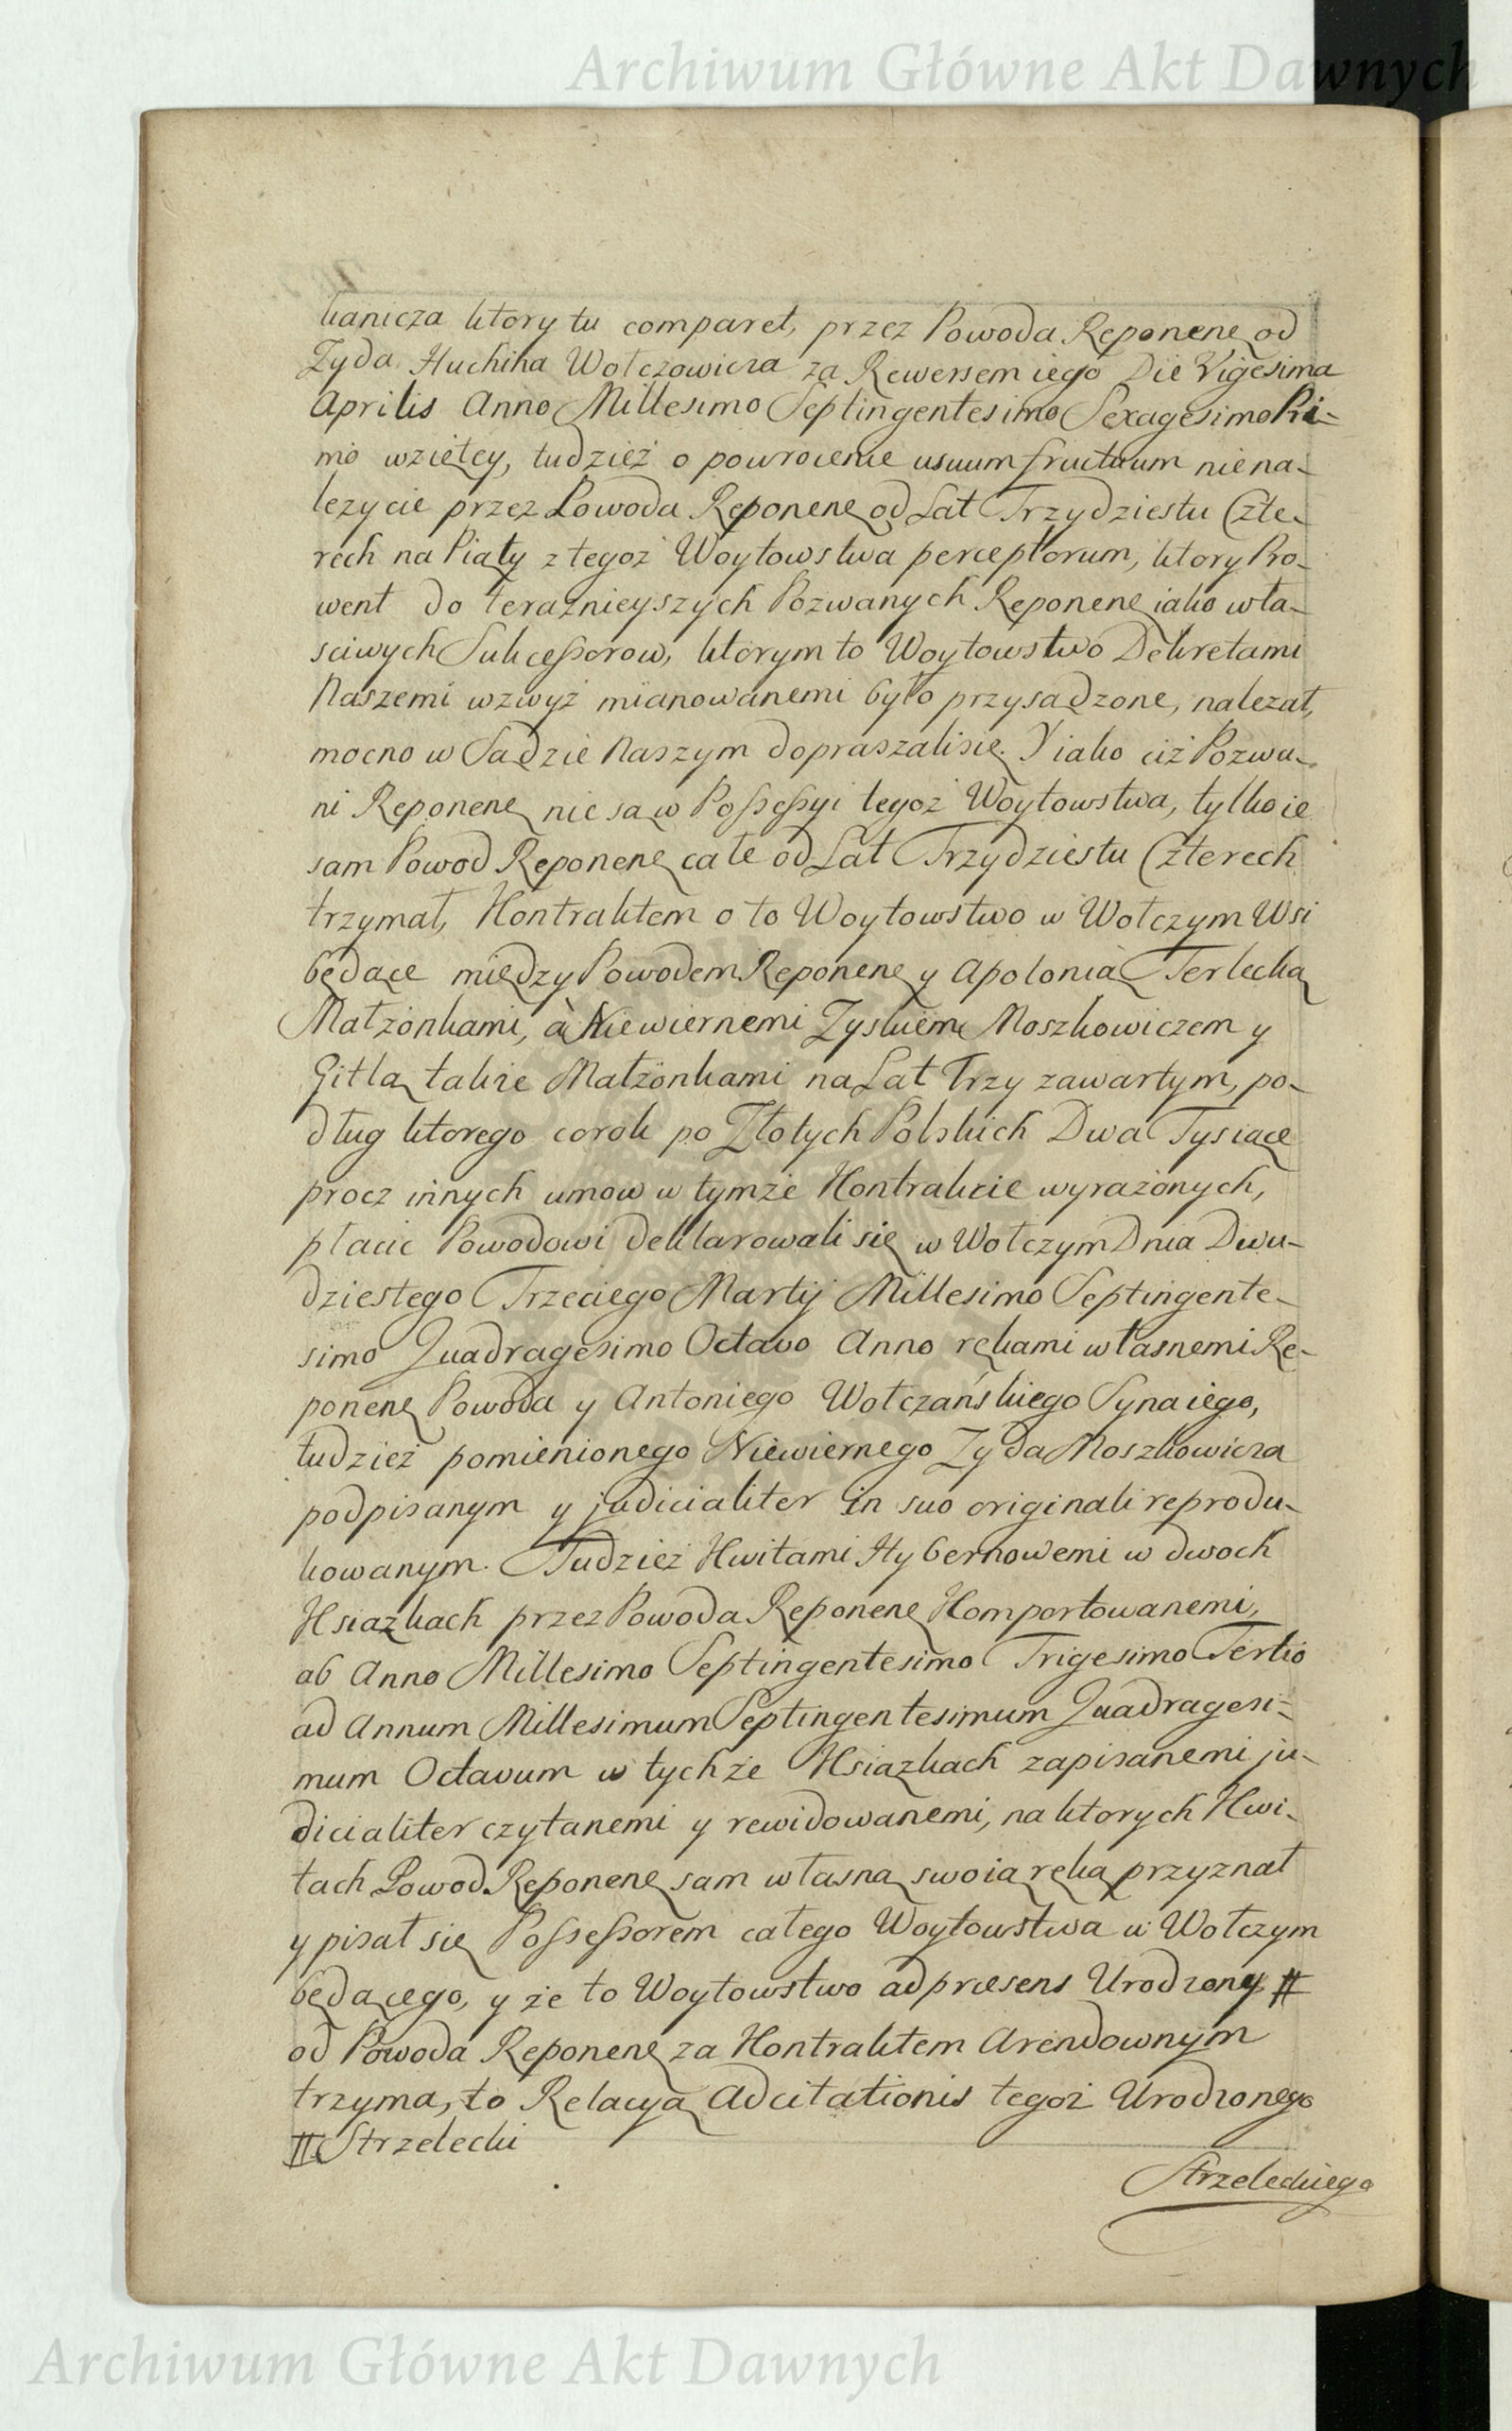 Archiwum Główne Akt Dawnych
kanicza ktory tu comparet, przez Powoda Reponenę od
Zyda Huchika Wołczowicza za Rewersem iego Die Vigesima
Aprilis Anno Millesimo Septingentesimo Sexagesimo Pri-
mo wziętey, tudzież o powrocenie usuum fructuum niena-
lezycie przez Powoda Reponenę od Lat Trzydziestu Czte-
rech na Piąty z tegoż Woytowstwa perceptorum, ktory Pro-
went do teraznieyszych Pozwanych Reponenę iako wła-
sciwych Sukceßorow, ktorym to Woytowstwo Dekretami
Naszemi wzwyż mianowanemi było przysądzone, nalezał,
mocno w Sądzie Naszym dopraszali się. Y iako ciż Pozwa-
ni Reponenę nie są w Poßeßyi tegoż Woytowstwa, tylko ie
sam Powod Reponenę całe od Lat Trzydziestu Czterech
trzymał, Kontraktem o to Woytowstwo w Wołczym Wsi
będące między Powodem Reponenę y Apolonią Terlecką
Małżonkami, à Niewiernemi Zyskiem Moszkowiczem y
Gitlą także Małżonkami na Lat Trzy zawartym, po-
dług ktorego corok po Złotych Polskich Dwa Tysiące
procz innych umow w tymże Kontrakcie wyrażonych,
płacic Powodowi deklarowali się w Wołczym Dnia Dwu-
dziestego Trzeciego Martij Millesimo Septingente-
simo Quadragesimo Octavo Anno rękami własnemi Re-
ponenę Powoda y Antoniego Wołczańskiego Syna iego,
tudzież pomienionego Niewiernego Zyda Moszkowicza
podpisanym y judicialiter in suo originali reprodu-
kowanym. Tudzież Kwitami Hybernowemi w dwoch
Ksiązkach przez Powoda Reponenę Komportowanemi,
ab Anno Millesimo Septingentesimo Trigesimo Tertio
ad Annum Millesimum Septingentesimum Quadragesi-
mum Octavum w tychże Ksiązkach zapisanemi ju-
dicialiter czytanemi y rewidowanemi, na ktorych Kwi-
tach Powod Reponenę sam własną swoią ręką przyznał
y pisał się Poßeßorem całego Woytowstwa w Wołczym
będącego, y że to Woytowstwo ad præsens Urodzony #
od Powoda Reponenę za Kontraktem Arendownym
trzyma, to Relacyą Adcitationis tegoż Urodzonego
# Strzelecki
Strzeleckiego
Archiwum Główne Akt Dawnych